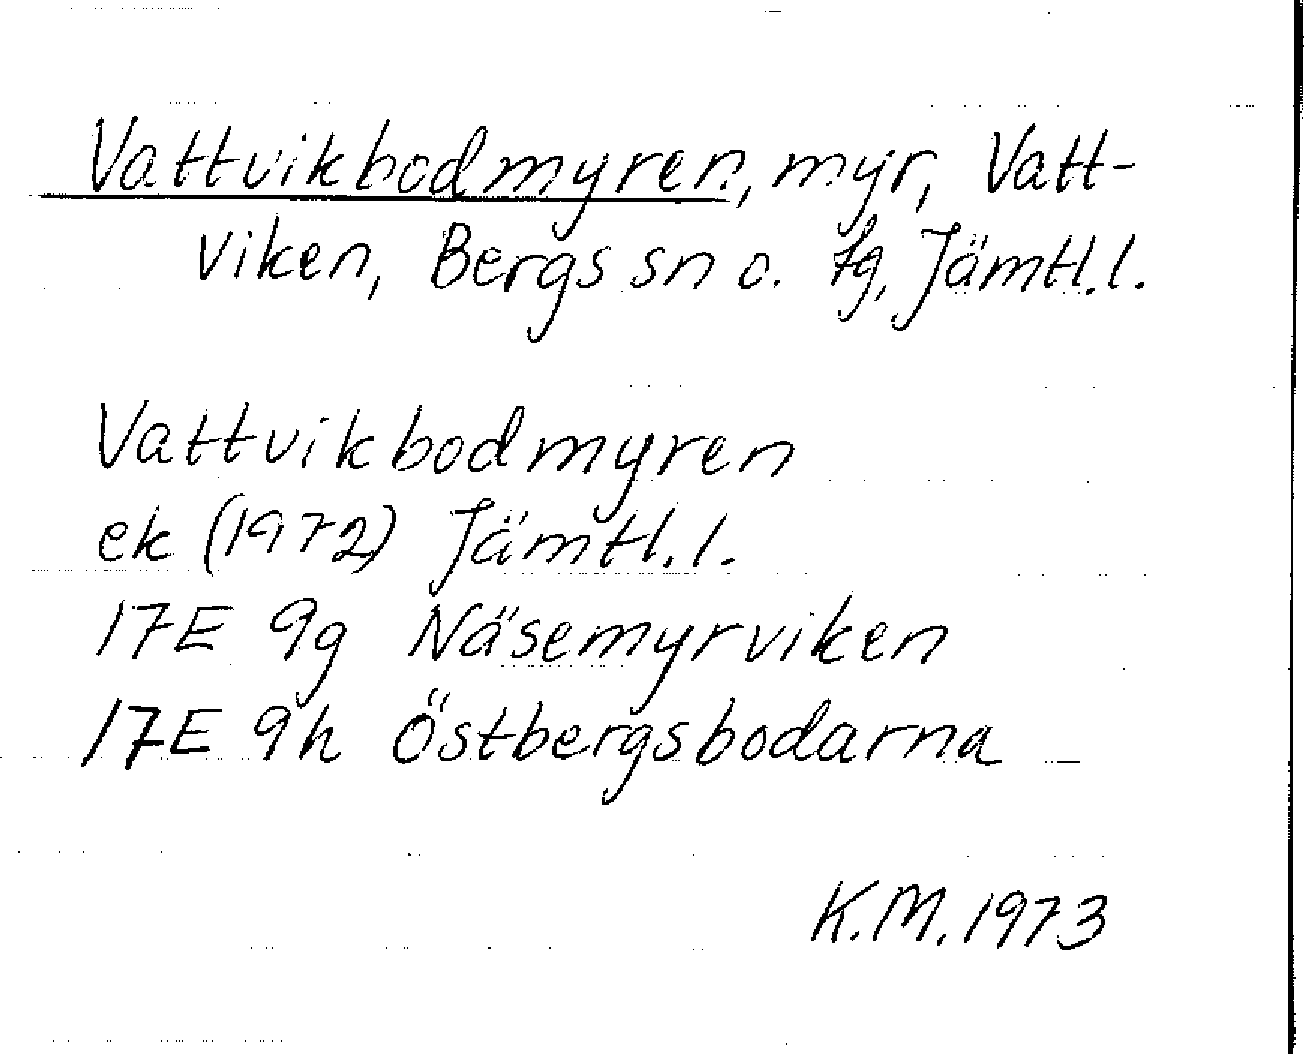 Vattvikbodmyren, myr, Vatt-
viken, Bergs sn o. tg, Jämtl.l.
Vattvikbodmyren
ek (1972) Jämtl.l.
17E 9g Näsemyrviken
17E 9h Östbergsbodarna
K.M. 1973